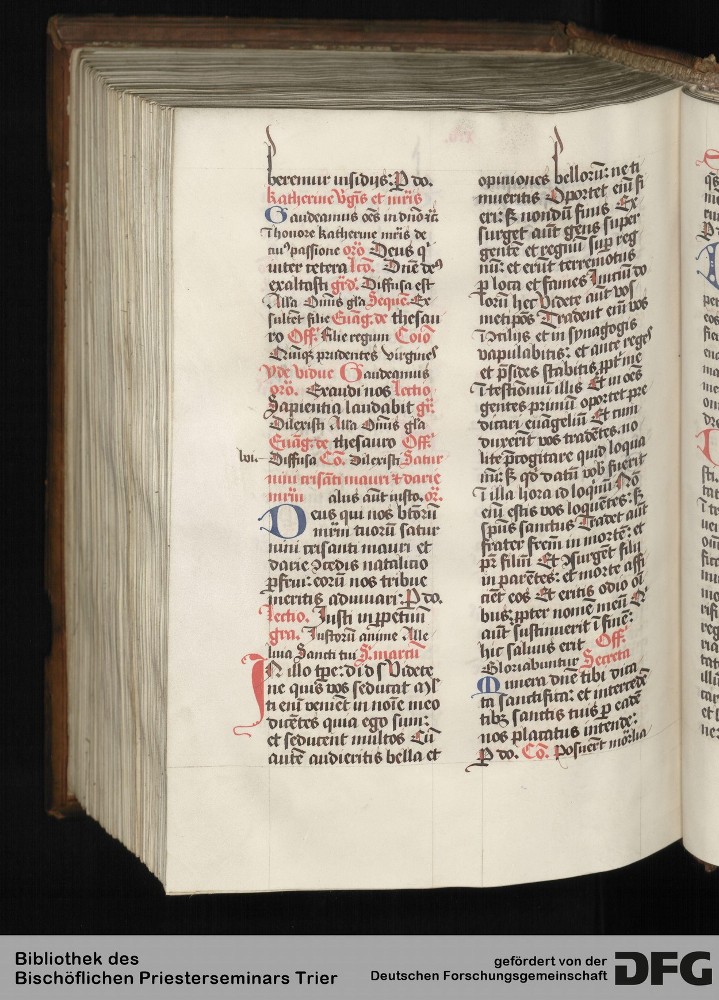 beremur insidijs: P do.
katherine v͛gīs et mr̄is
Gaudeamus oēs in dn̄o ꝛc̄
ī honore katherine mr̄is de
cuiꝰ passione orō Deus q
inter cetera lcō. Dn̄e deꝰ
exaltasti gr̄d. Diffusa est
Alla Om̄is gl̄a Seque. Ex
sultēt filie Euāg. de thesau
ro Off. Filie regum Coiō
Quīqꝫ prudentes virgines
Vde vidue Gaudeamus
orō. Exaudi nos lectio
Sapientiā laudabit gr̄.
Dilexisti Alla Om̄is gl̄a
Euāg. de thesauro Off.
Diffusa Cō. Dilexisti Satur
nini crisāti mauri ⁊ darie
mr̄iū alus aūt iusto. or̄.
Deus qui nos btōrū
mr̄iū tuorū satur
nini crisanti mauri et
darie ɔcedis natalicio
ꝑfrui: eorū nos tribue
meritis adiuuari: P do.
lectio. Justi in ꝑpetuū
gra. Justorū anime Alle
luia Sancti tui S. marcū
IN illo tꝑe: d. i. d. s. Videte
ne quis vos seducat Ml
ti enī veniēt in noīe meo
dicētes quia ego sum:
et seducent multos Cū
autē audieritis bella et
opiniones bellorū: ne ti
mueritis Oportet enī fi
eri: sꝫ nondū finis Ex
surget aūt gens super
gentē et regnū suꝑ reg
nū: et erūt terremotus
ꝑ loca et fames Iniciū do
lorū hec Videte aūt vos
metipōs Tradent enī vos
ī ɔcilijs et in synagogis
vapulabitis: et ante reges
et p̄sides stabitis ꝓpt̄ me
ī testīoniū illis Et in oēs
gentes primū oportet pre
dicari euāgeliū Et cum
duxerīt vos tradētes. no
lite p̄cogitare quid loqua
mī: sꝫ qd̄ datū vob̄ fuerit
ī illa hora id loq̄mī Nō
enī estis vos loquētes: sꝫ
spūs sanctus Tradet aūt
frater frem̄ in mortē: et
pr̄ filiū Et ɔsurget filij
in parētes: et morte affi
ciēt eos Et eritis odio oī
bus: ꝓpter nomē meū Q
aūt sustinuerit ī finē:
hic saluus erit Off.
Gloriabuntur Secreta
Munera dn̄e tibi dica
ta sanctifica: et intercedē
tibꝫ sanctis tuis ꝑ eadē
nos placatus intende:
P do. Cō. Posuer̄t mōrlia
Bibliothek des
Bischöflichen Priesterseminars Trier
gefördert von der
Deutschen Forschungsgemeinschaft
DFG